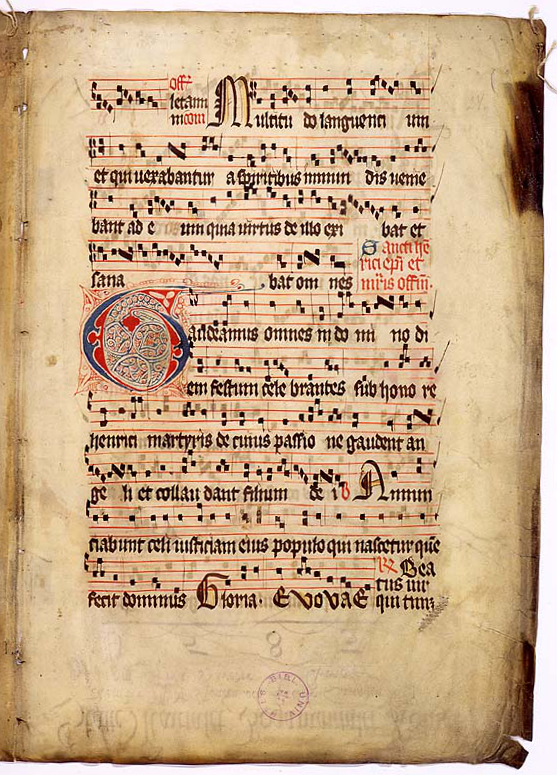 Off͛
letam
ini com Multitu do languenti um
et qui uexabantur a spiritibus inmun dis uenie
bant ad e um quia uirtus de illo exi bat et
sana bat om nes
Sancti he
rici ep̄i et
m̄ris offm̄.
Gaudeamus omnes in do mi no di
em festum cele brantes sub hono re
henrici martyris de cuius passio ne gaudent an
ge li et collau dant filium de i v Annun
ciabunt celi iusticiam eius populo qui nascetur quē
fecit dominus Gloria. EVOVAE
R Bea
tus uir
qui tim
8
BIBL. UNIV.